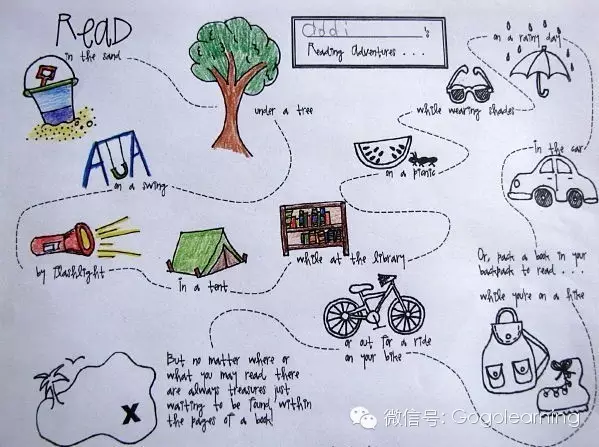 READ
in the sand
under a tree
on a swing
by flashlight
in a tent
while at the library
on a picnic
while wearing shades
on a rainy day
in the car
Or, pack a book in your
backpack to read . . . .
while you're on a hike
or out for a ride
on your bike
But no matter where or
what you may read, there
are always treasures just
waiting to be found within
the pages of a book!
X
Addi's
Reading Adventures . . .
微信号: Gogolearning